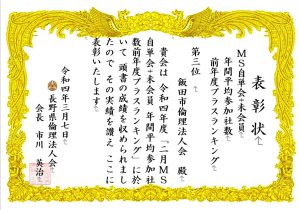 表彰状
MS自単会+未会員
年間平均参加社数
前年度プラスランキング
第三位
飯田市倫理法人会 殿
貴会は 令和四年度「二月MS
自単会+未会員 年間平均参加社
数前年度プラスランキング」に於
いて 頭書の成績を収められまし
たので その実績を讃え ここに
表彰いたします
令和四年三月七日
長野県倫理法人会
会長 市川 英治